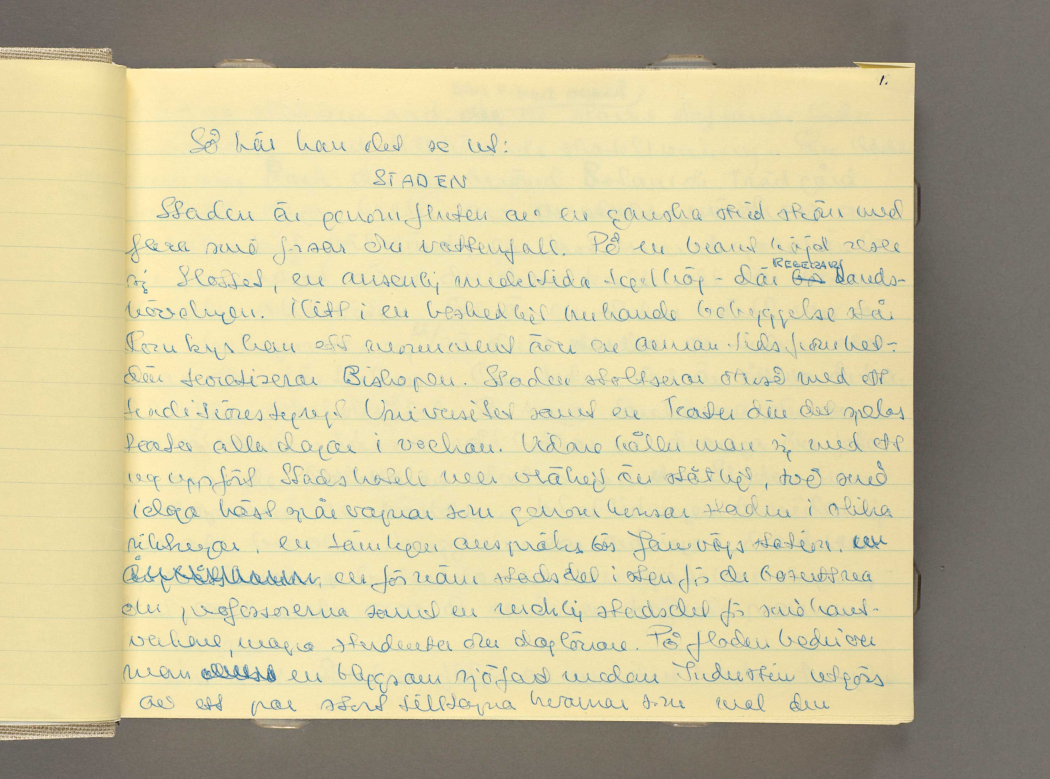 1.
Så här kan det se ut:
STADEN
Staden är genomfluten av en ganska strid ström med
flera små forsar och vattenfall. På en brant höjd reser
sig Slottet, en ansenlig medeltida tegelhög - där REGERAR Lands-
hövdingen. Mitt i en beskedligt bebyggelse står
Domkyrkan ett monument över en annan tids fromhet -
där teoretiserar Biskopen. Staden stoltserar också med ett
traditionstyngt Universitet samt en Teater där det spelas
teater alla dagar i veckan. Vidare håller man sig med ett
nyuppfört Stadshotell mer vräkigt än ståtligt, två små
idoga hästspårvagnar som genomkorsar staden i olika
riktningar, en tämligen anspråkslös Järnvägsstation,
en förnäm stadsdel i sten för de besuttna
och professorerna samt en ruckig stadsdel för små hant-
verkare, magra studenter och daglönare. På floden bedriver
man en blygsam sjöfart medan Industrin utgörs
av ett par stort tilltagna kvarnar som mal den